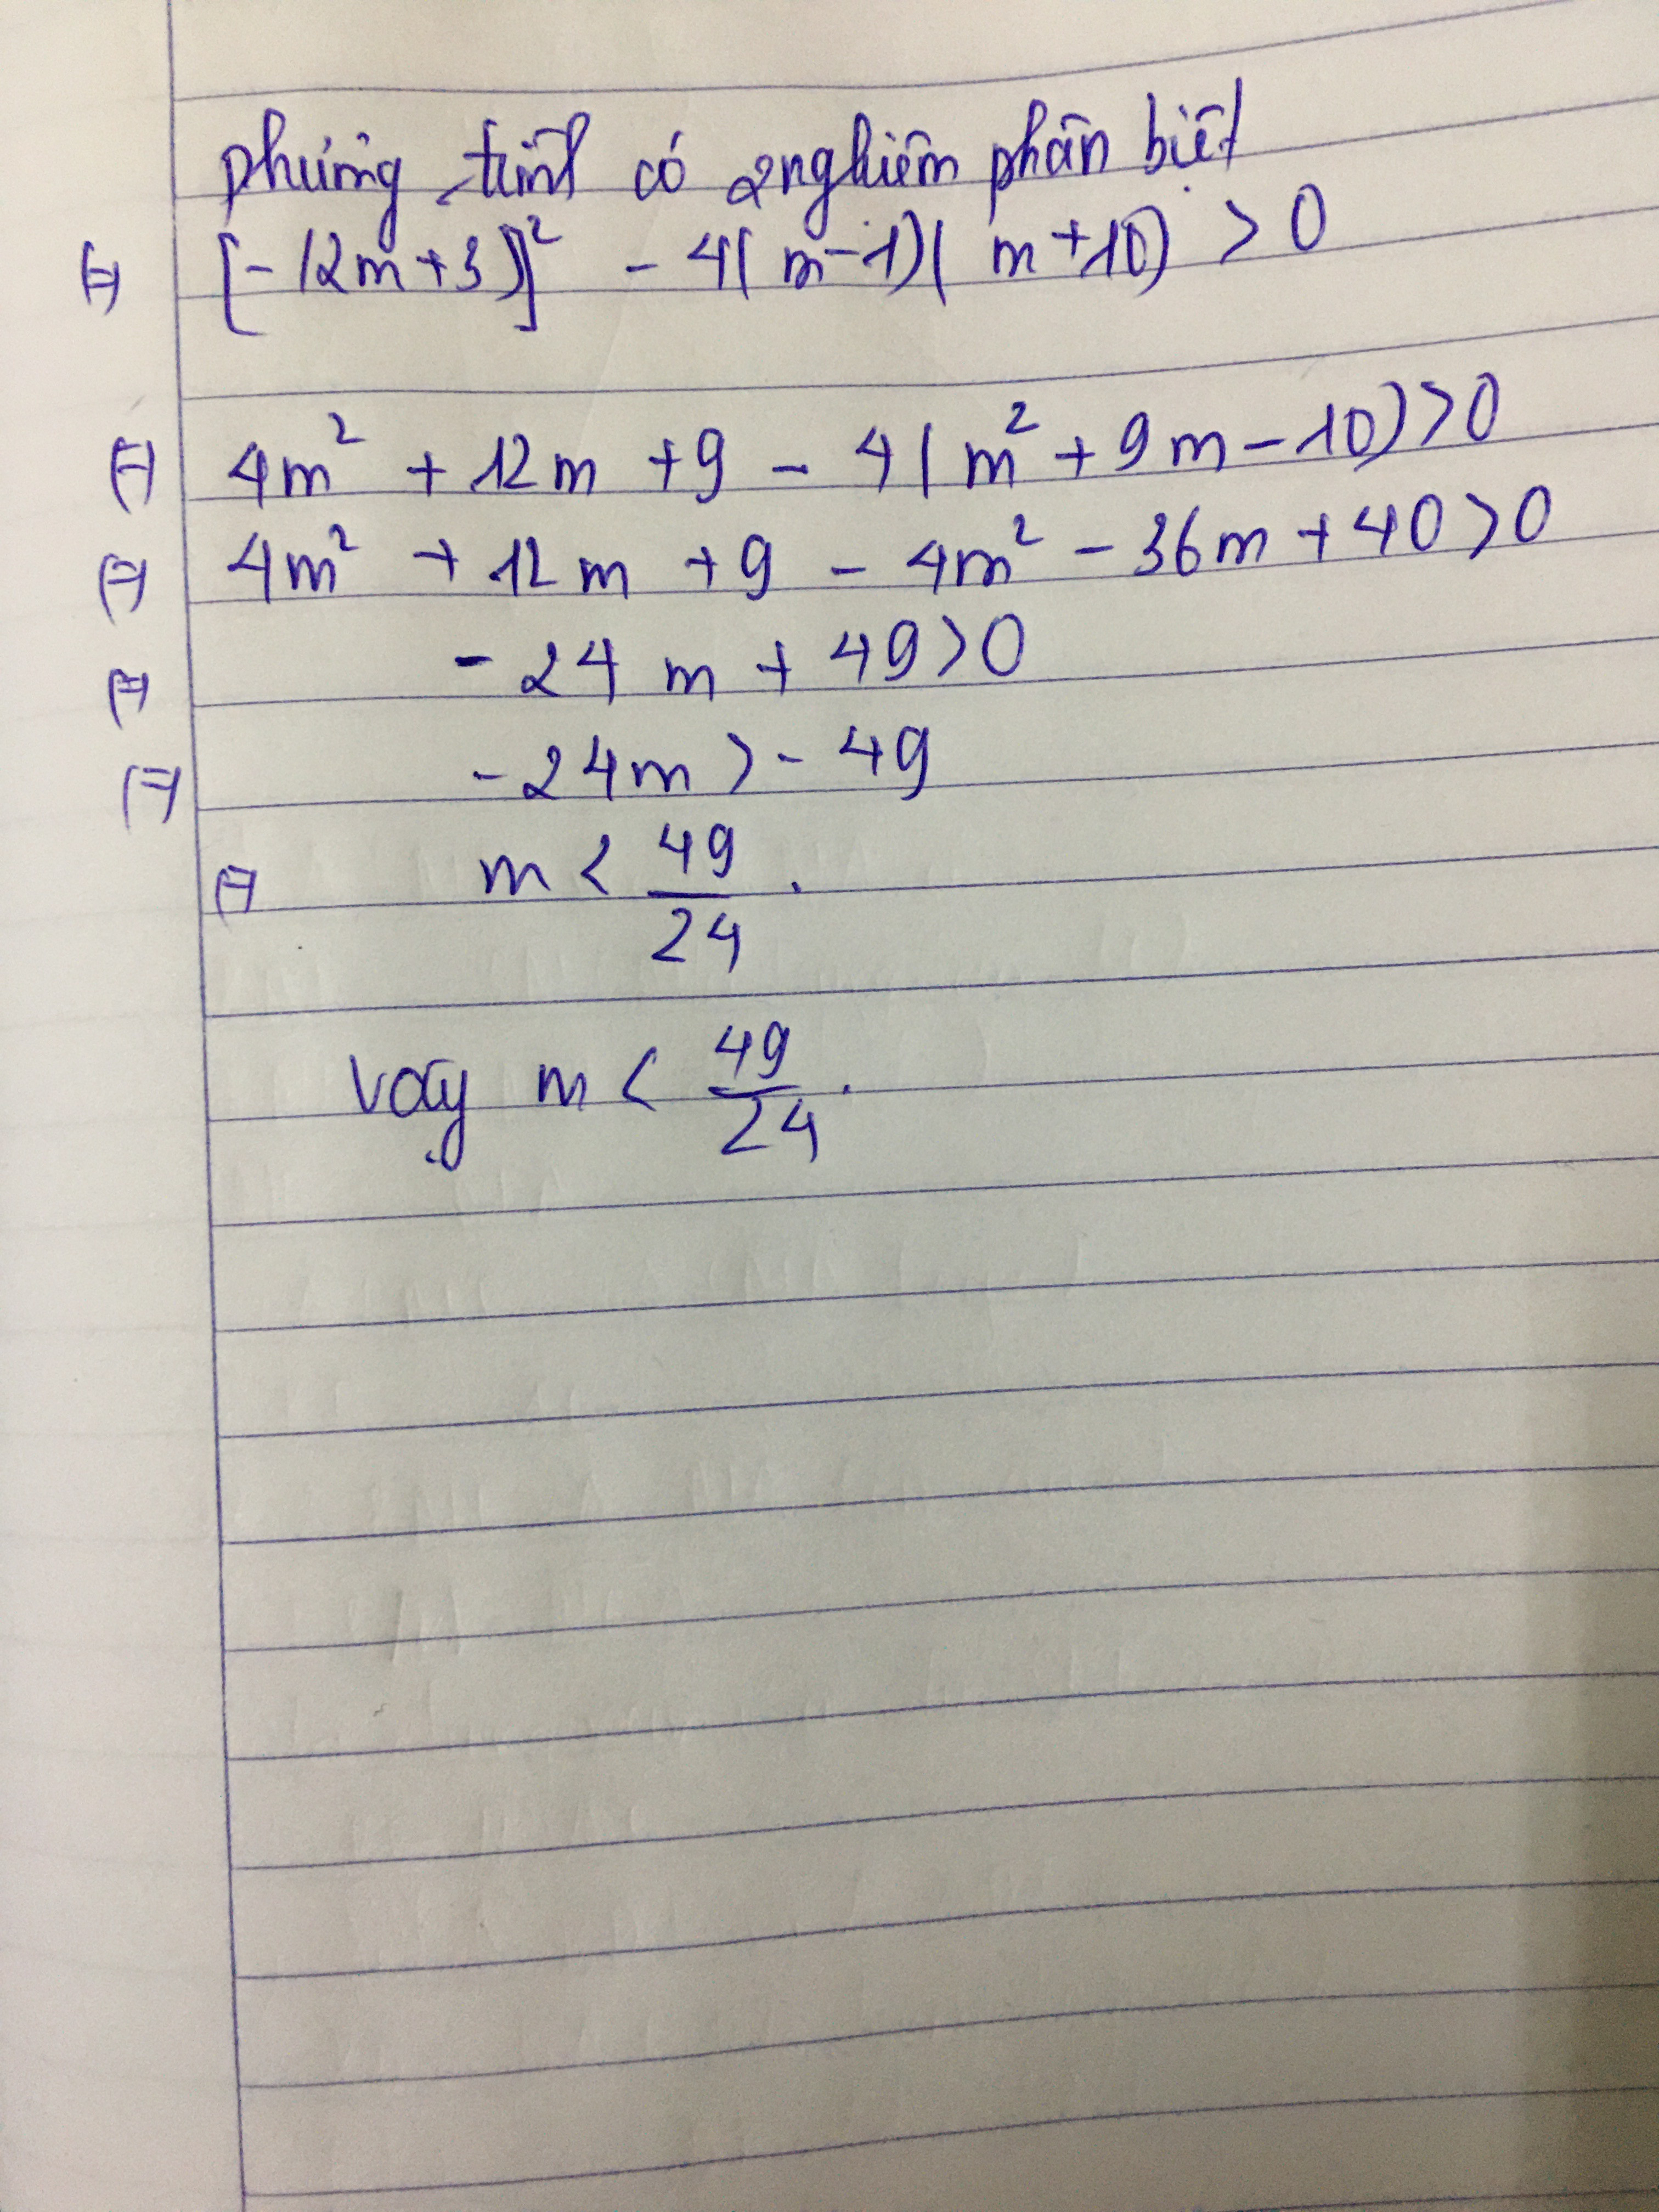 phương trình có 2 nghiệm phân biệt
(=) [-(2m+3)]² - 4(m-1)(m+10) > 0
(=) 4m² + 12m + 9 - 4(m² + 9m - 10) > 0
(=) 4m² + 12m + 9 - 4m² - 36m + 40 > 0
(=) - 24m + 49 > 0
(=) - 24m > - 49
(=) m < 49/24 .
Vậy m < 49/24 .